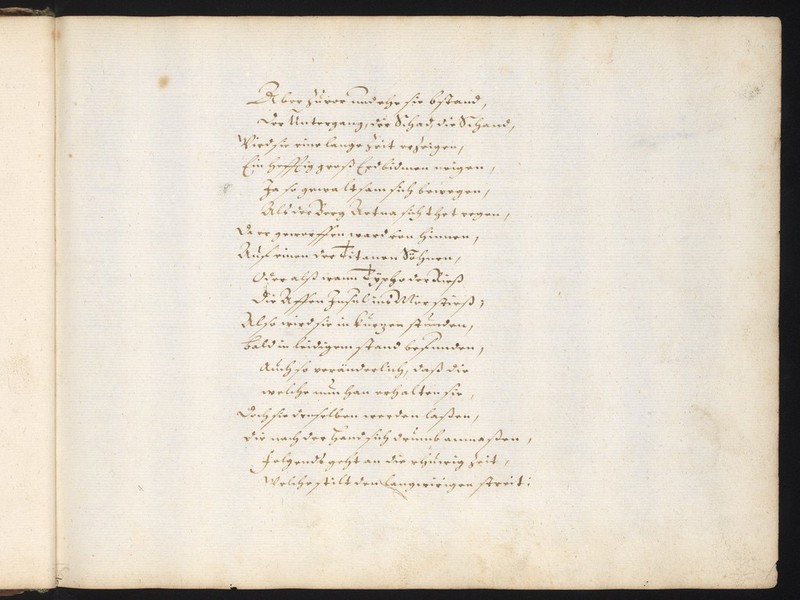 Aber zuvor und ehe sie bstand,
Der Untergang, der Schad, die Schand,
Wird sie eine lange Zeit erzeigen,
Ein hefftig groß Erdbidmen eigen,
Ja so gewaltsam sich bewegen,
Als der Berg Aetna sich thet regen,
Da er geworffen ward von hinnen,
Auf einen der Titanen Söhnen,
Oder alß wann Typho der Rieß
Die Affen Insul ins Meer stieß;
Also wird sie in kurtzen stunden,
bald in leidigem stand befunden,
Auch so veränderlich, daß die
welche nun han erhalten sie,
Doch sie denselben werden laßen,
die nach der Hand sich drumb anmaßen,
folgends geht an die rhuwig Zeit,
Welche stilt den langwirigen streit: